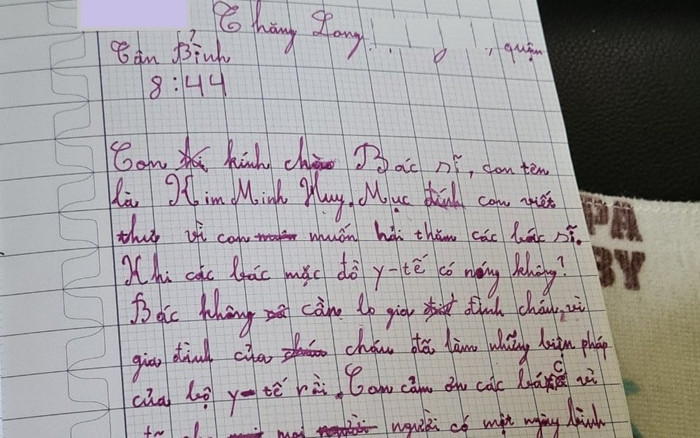 Thăng Long, quận
Tân Bình
8:44
Con kính chào Bác sĩ, con tên
là Kim Minh Huy. Mục đính con viết
thư vì con muốn hỏi thăm các bác sĩ.
Khi các bác mặc đồ y-tế có nóng không?
Bác không cần lo gia đình cháu, vì
gia đình của cháu đã làm những biện pháp
của bộ y-tế rồi. Con cảm ơn các bác vì
mọi người có một ngày bình
PA
BY